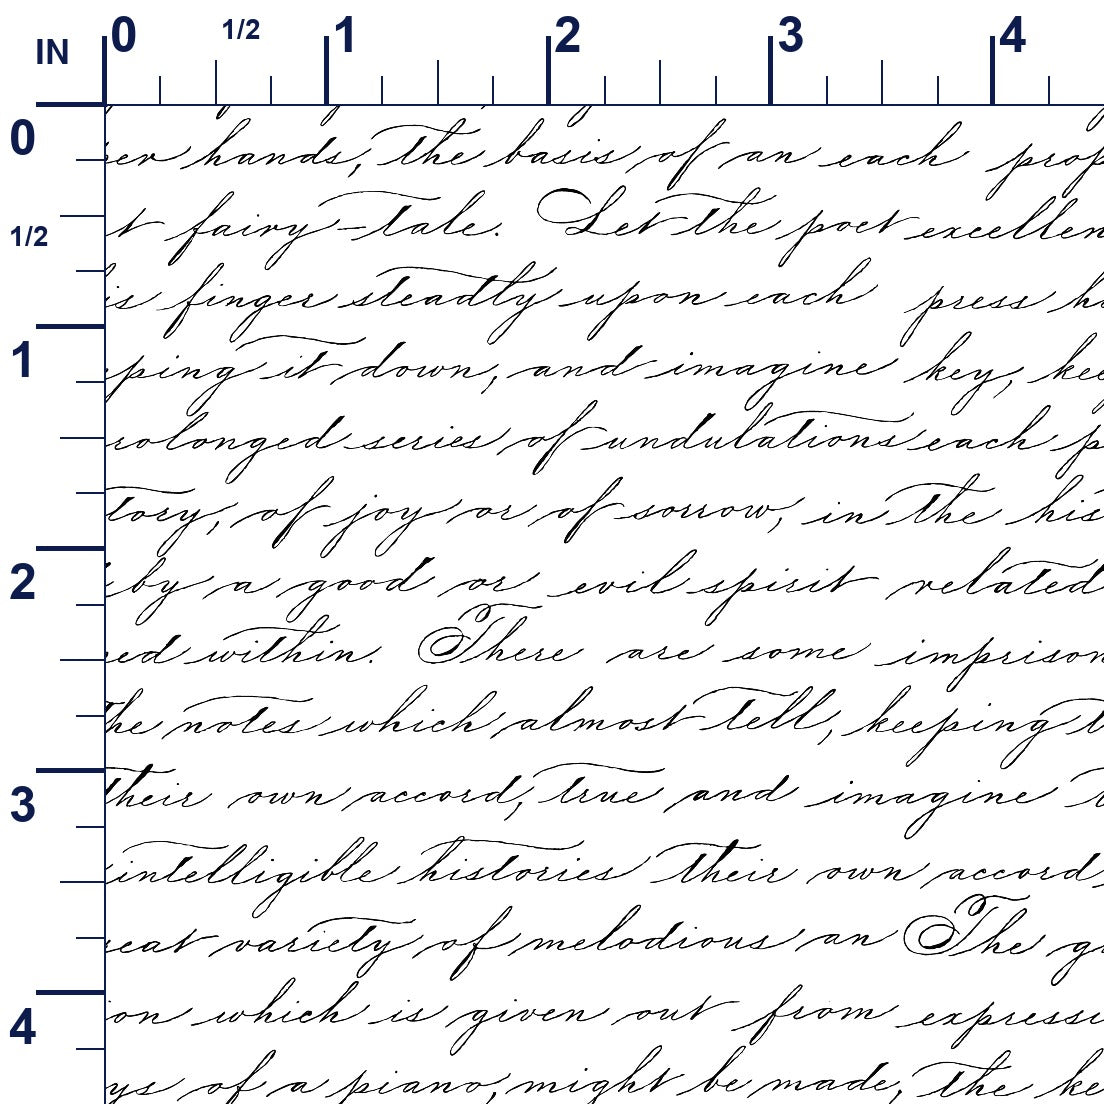 IN 0 1/2 1 2 3 4
0
1/2
1
2
3
4
hands, the basis of an each prop
t fairy-tale. Let the poet excellen
is finger steadtly upon each press h
ping it down, and imagine key, kee
rolonged series of undulations each p
tory, of joy or of sorrow, in the his
by a good or evil spirit related
ed within. There are some imprison
the notes which almost tell, keeping t
their own accord, true and imagine
intelligible histories their own accord,
eat variety of melodious an The g
on which is given out from expressi
ys of a piano, might be made, the ke